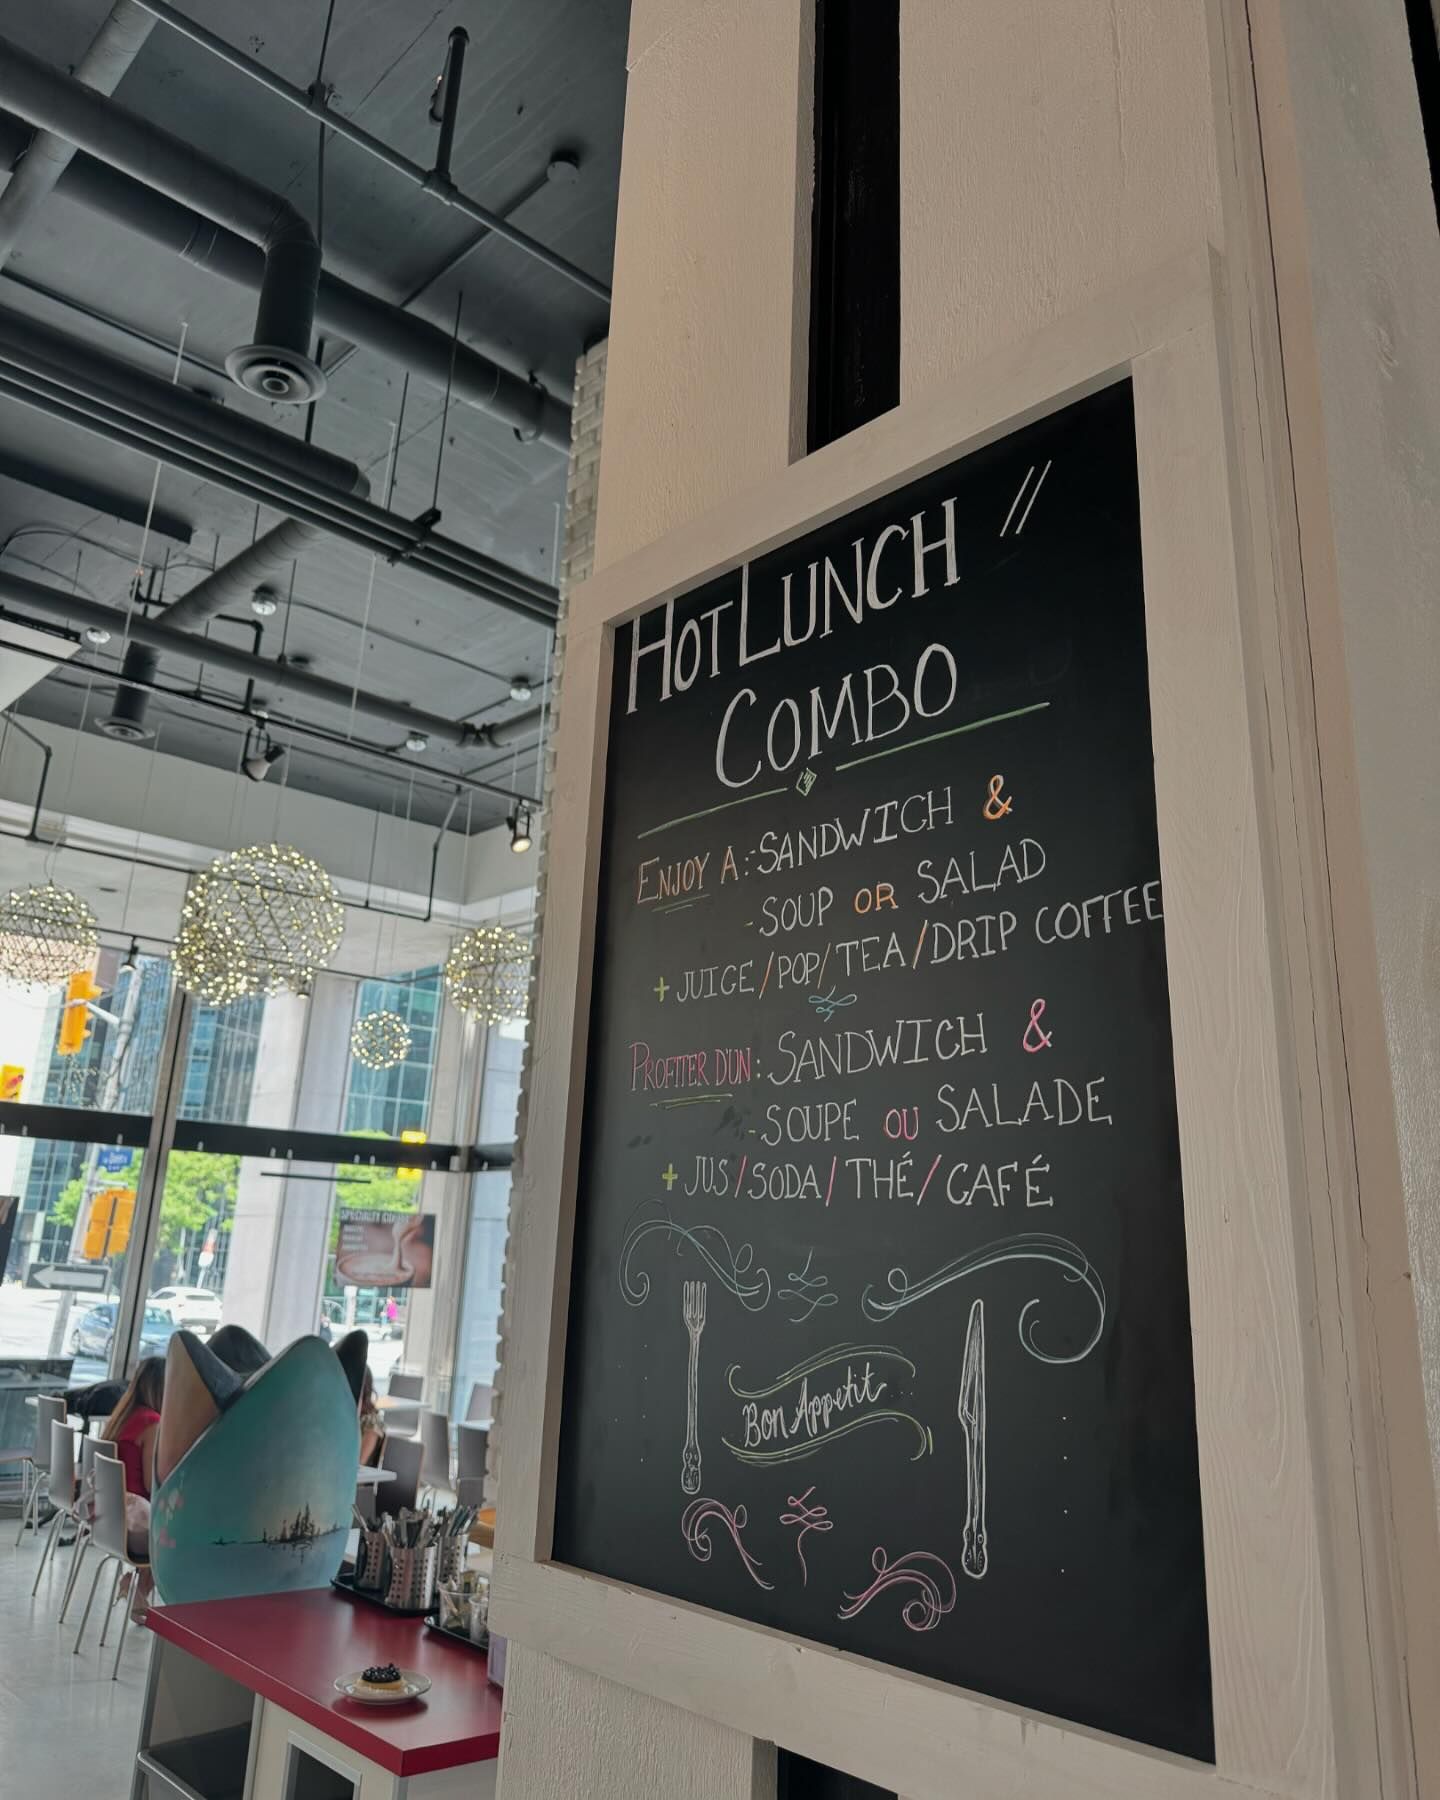 HOT LUNCH //
COMBO
ENJOY A: - SANDWICH &
- SOUP OR SALAD
+ JUICE / POP / TEA / DRIP COFFEE
PROFITER D'UN: SANDWICH &
- SOUPE OU SALADE
+ JUS / SODA / THÉ / CAFÉ
Bon Appetit